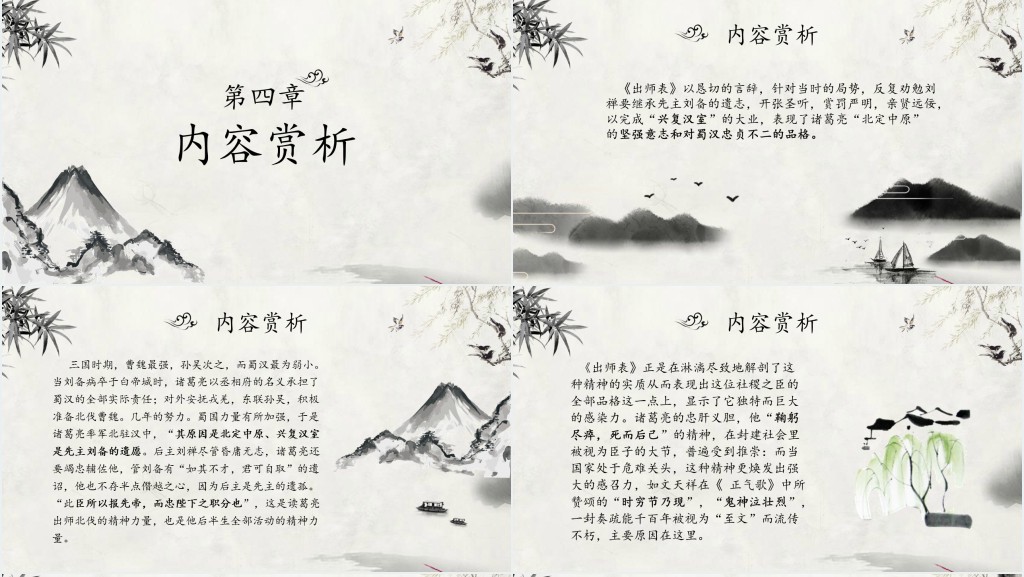 第四章
内容赏析
内容赏析
《出师表》以恳切的言辞，针对当时的局势，反复劝勉刘
禅要继承先主刘备的遗志，开张圣听，赏罚严明，亲贤远佞，
以完成“兴复汉室”的大业，表现了诸葛亮“北定中原”
的坚强意志和对蜀汉忠贞不二的品格。
内容赏析
三国时期，曹魏最强，孙吴次之，而蜀汉最为弱小。
当刘备病卒于白帝城时，诸葛亮以丞相府的名义承担了
蜀汉的全部实际责任；对外安抚戎羌，东联孙吴，积极
准备北伐曹魏。几年的努力。蜀国力量有所加强，于是
诸葛亮率军北驻汉中，“其原因是北定中原、兴复汉室
是先主刘备的遗愿。后主刘禅尽管昏庸无志，诸葛亮还
要竭忠辅佐他，管刘备有“如其不才，君可自取”的遗
诏，他也不存半点僭越之心，因为后主是先主的遗孤。
“此臣所以报先帝，而忠陛下之职分也”，这是诸葛亮
出师北伐的精神力量，也是他后半生全部活动的精神力
量。
内容赏析
《出师表》正是在淋漓尽致地解剖了这
种精神的实质从而表现出这位社稷之臣的
全部品格这一点上，显示了它独特而巨大
的感染力。诸葛亮的忠肝义胆，他“鞠躬
尽瘁，死而后已”的精神，在封建社会里
被视为臣子的大节，普遍受到推崇；而当
国家处于危难关头，这种精神更焕发出强
大的感召力，如文天祥在《 正气歌》中所
赞颂的“时穷节乃现”，“鬼神泣壮烈”，
一封奏疏能千百年被视为“至文”而流传
不朽，主要原因在这里。